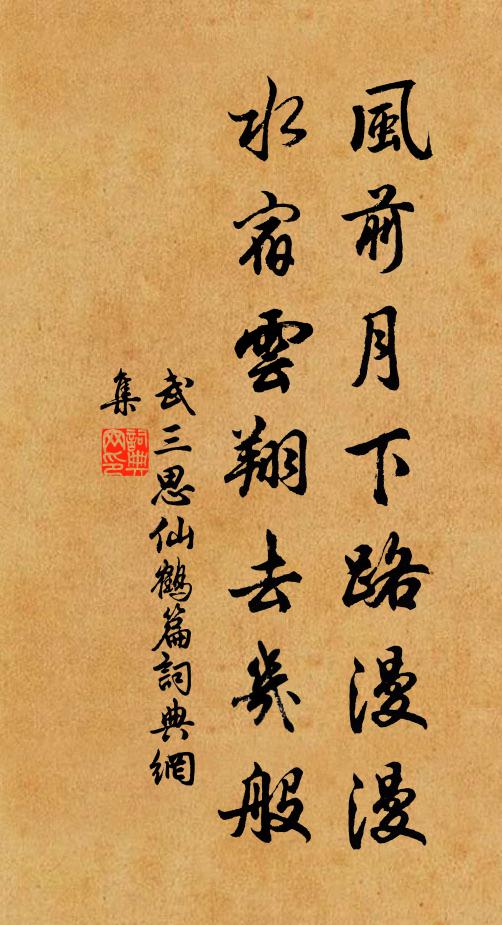 風前月下路漫漫
水宿雲翔去幾般
武三思仙鶴篇詞典網
集
詞典
网印